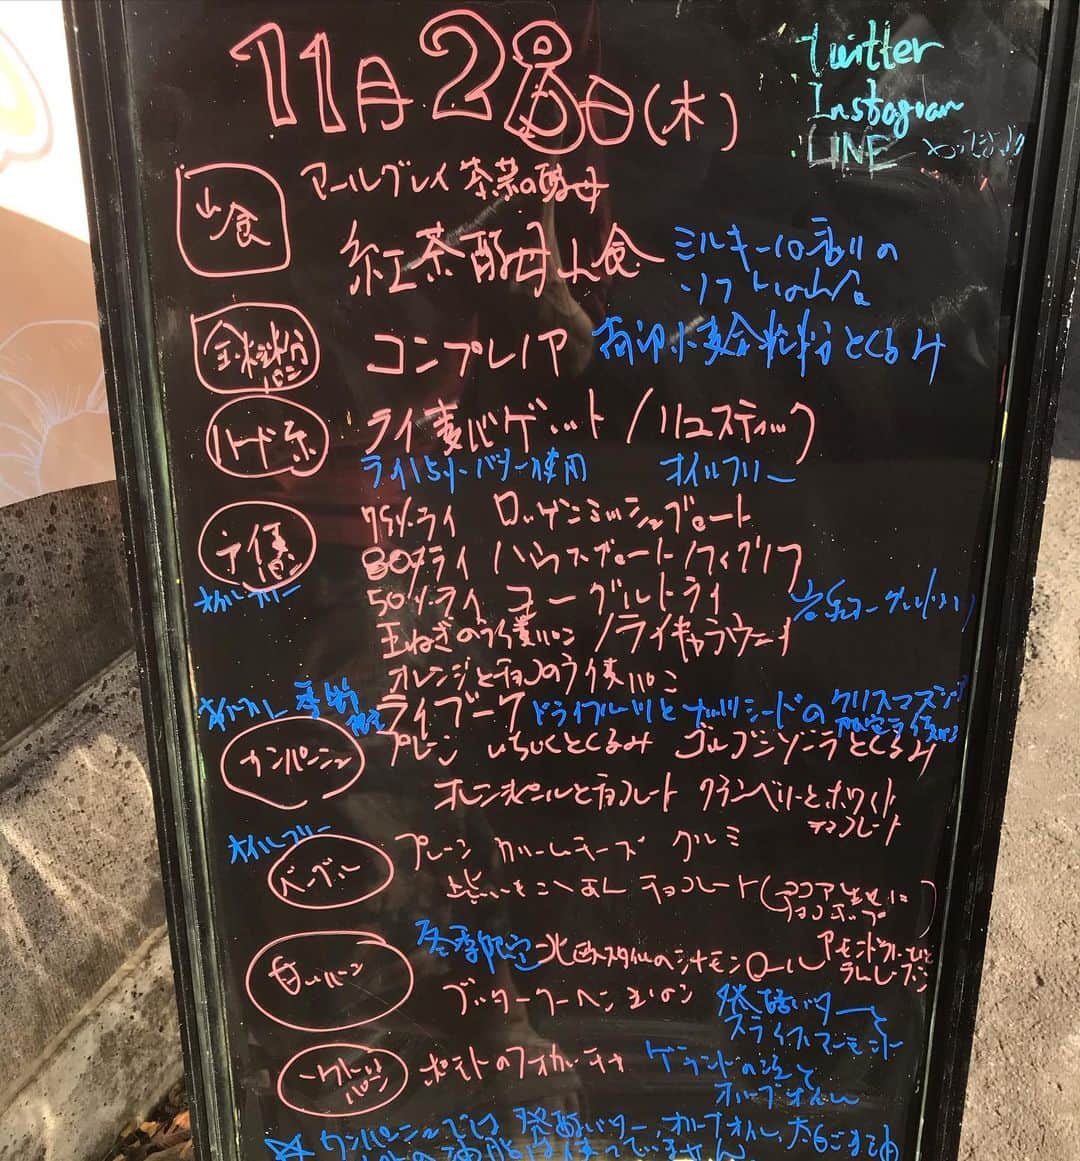 11月28日(木)
Twitter
Instagram
LINE やってます
山食
アールグレイ茶葉の酵母
紅茶酵母山食
ミルキーな香りの
ソフトな山食
全粒粉パン
コンプレノア
南部小麦全粒粉とくるみ
ハード系
ライ麦バゲット/リュスティック
ライ15% バター使用
オイルフリー
ライ麦パン
オイルフリー
75%ライ ロッゲンミッシュブロート
80%ライ ハウスブロート/
50%ライ ヨーグルトライ
玉ねぎのライ麦パン/ライキャラウェイ
オレンジとチョコのライ麦パン
オイルフリー 季節限定
ライブーケ
ドライフルーツとナッツシードのクリスマス
限定ライ麦パン
カンパーニュ
プレーン いちじくとくるみ ゴルゴンゾーラとくるみ
オレンジピールとチョコレート クランベリーとホワイト
チョコレート
オイルフリー
ベーグル
プレーン クリームチーズ クルミ
紫いもこしあん チョコレート(ココア生地に
チョコチップ)
甘いパン
冬季限定 北欧スタイルのシナモンロール
アーモンドクリームと
ラムレーズン
ブッタークーヘン
発酵バターと
スライスアーモンド
パン
ポテトのフォカッチャ
ゲランドの塩と
オリーブオイル
☆カンパーニュでは発酵バター、オリーブオイル、太白ごま油
以外の油脂は使っていません